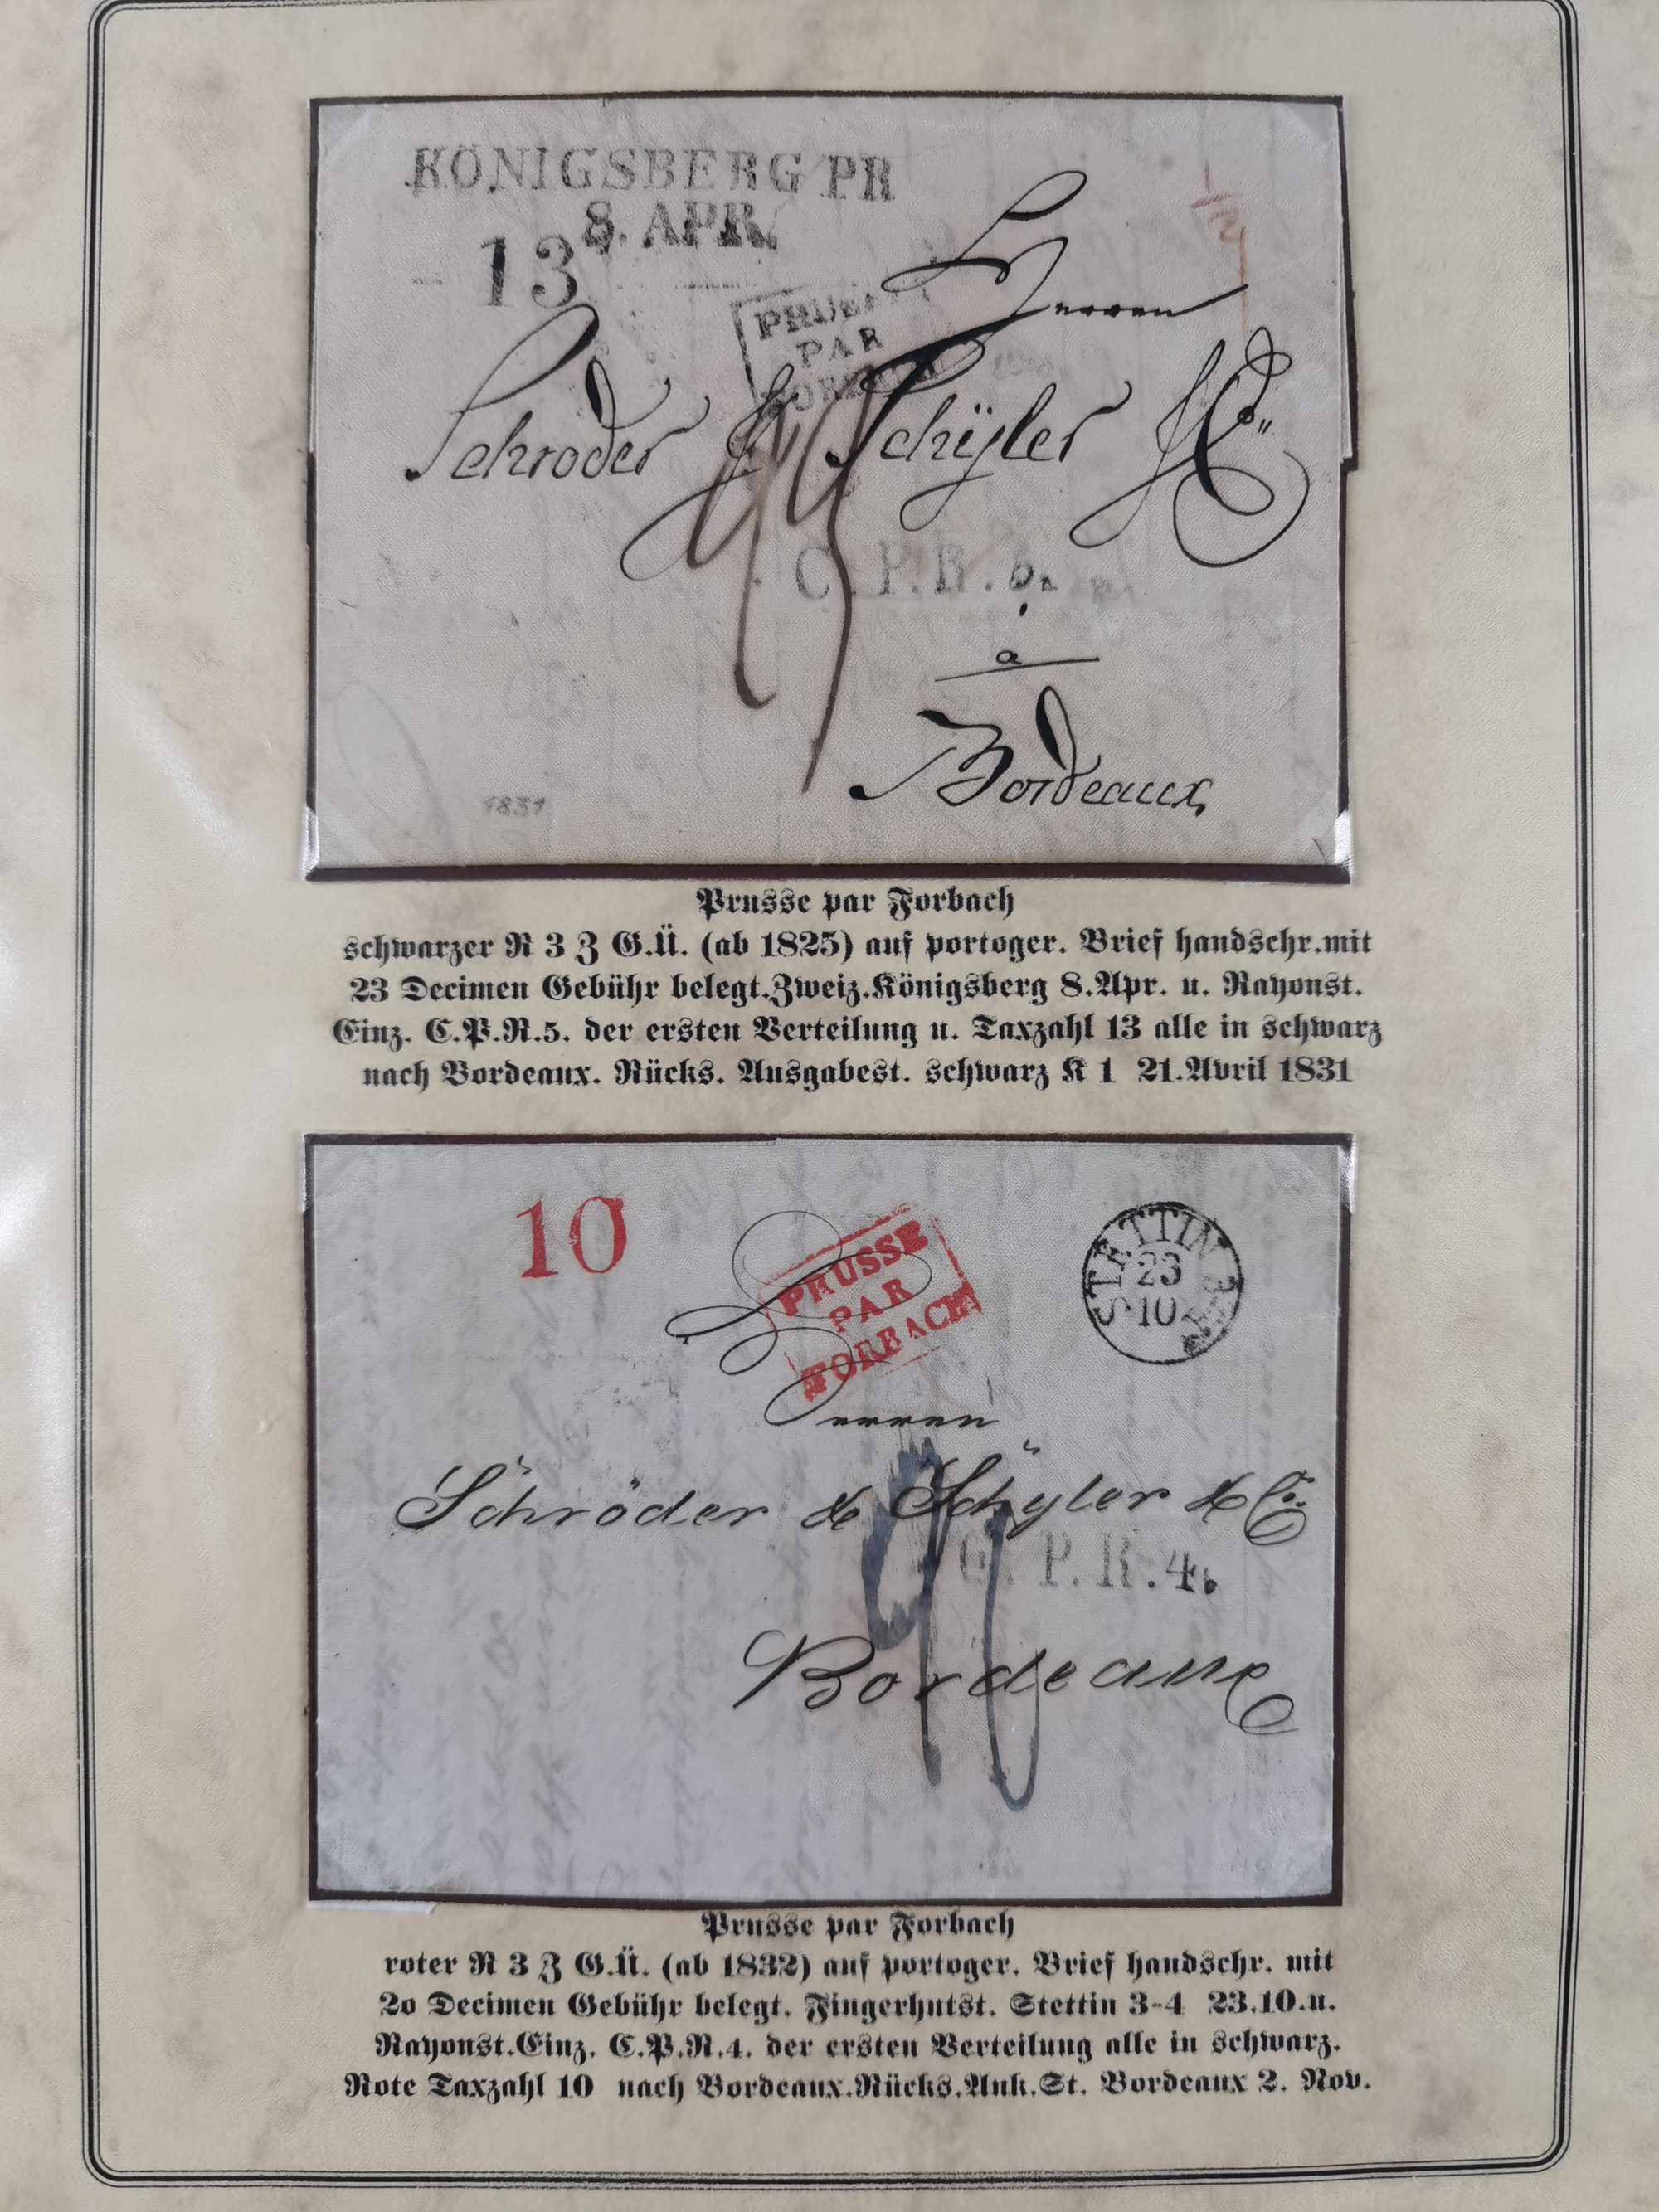 KÖNIGSBERG PR
8. APR.
13
1/2
PRUSSE
PAR
FORBACH
Herren
Schröder & Schÿler & Co
C.P.R.5.
a
Bordeaux
1831
Prusse par Forbach
schwarzer R 3 Z G.Ü. (ab 1825) auf portoger. Brief handschr.mit
23 Decimen Gebühr belegt.Zweiz.Königsberg 8.Apr. u. Rayonst.
Einz. C.P.R.5. der ersten Verteilung u. Taxzahl 13 alle in schwarz
nach Bordeaux. Rücks. Ausgabest. schwarz K 1 21.Avril 1831
10
PRUSSE
PAR
FORBACH
STETTIN 3-4
23
10
Herren
Schröder & Schyler & Co.
C.P.R.4.
Bordeaux
Prusse par Forbach
roter R 3 Z G.Ü. (ab 1832) auf portoger. Brief handschr. mit
2o Decimen Gebühr belegt. Fingerhutst. Stettin 3-4 23.10.u.
Rayonst.Einz. C.P.R.4. der ersten Verteilung alle in schwarz.
Rote Taxzahl 10 nach Bordeaux.Rücks.Ank.St. Bordeaux 2. Nov.